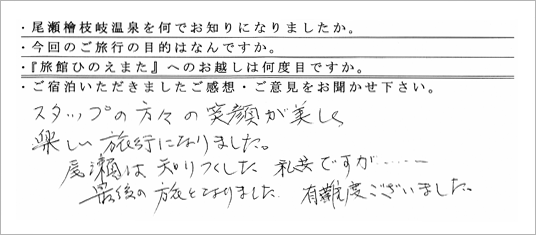 ・尾瀬檜枝岐温泉を何でお知りになりましたか。
・今回のご旅行の目的はなんですか。
・『旅館ひのえまた』へのお越しは何度目ですか。
・ご宿泊いただきましたご感想・ご意見をお聞かせ下さい。
スタップの方々の笑顔が美しく
楽しい旅行になりました。
尾瀬は知りつくした私共ですが……
最後の旅となりました 有難度ございました。